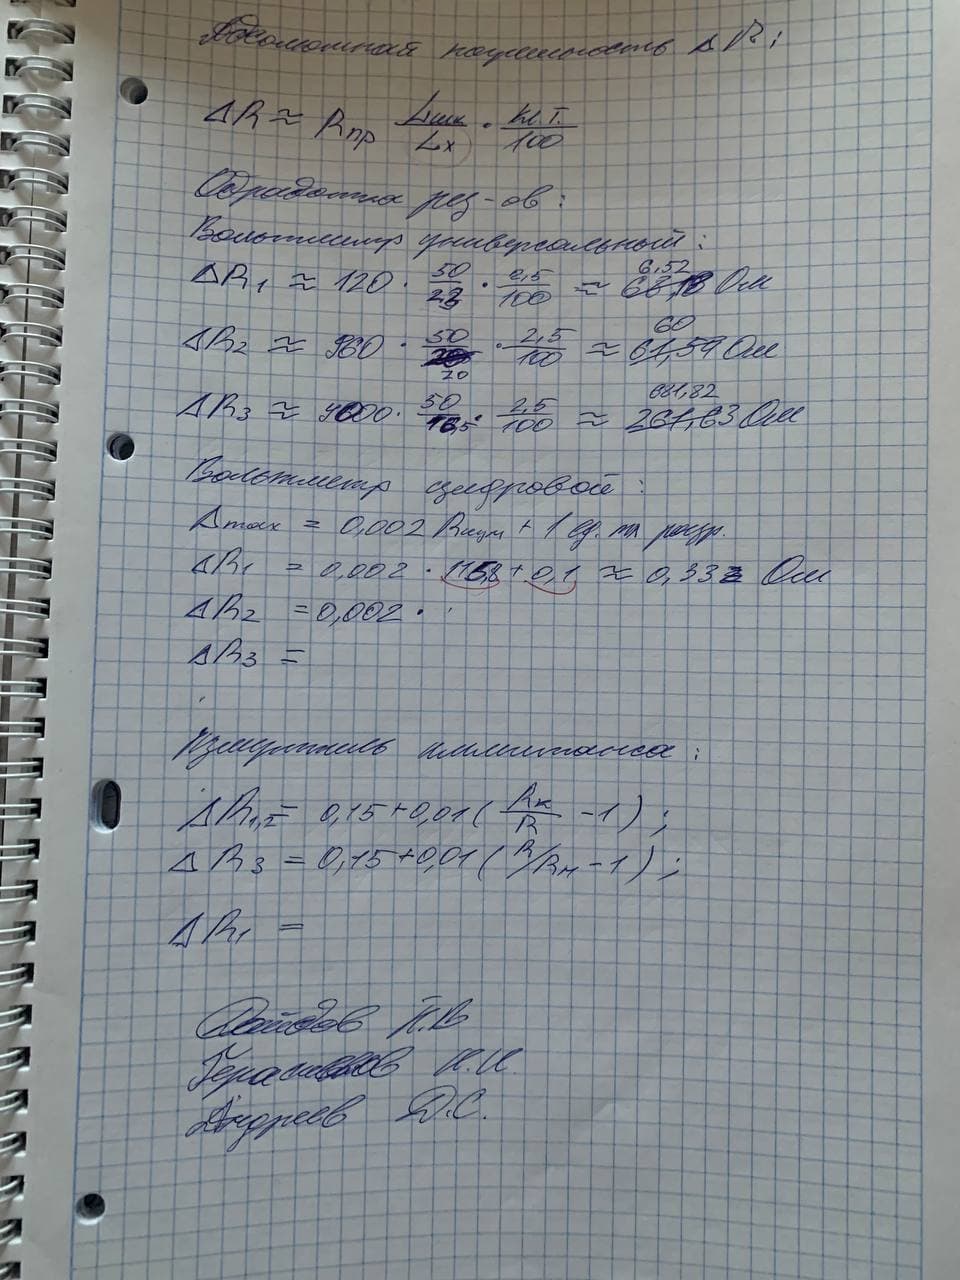 Абсолютная погрешность ΔR:
ΔR ≈ Rпр Lшк/Lх · Кл.Т./100
Обработка рез-ов:
Вольтметр универсальный:
ΔR1 ≈ 120 · 50/23 · 2,5/100 ≈ 6,52 Ом
ΔR2 ≈ 960 · 50/20 · 2,5/100 ≈ 60 61,59 Ом
ΔR3 ≈ 9000 · 50/16,5 · 2,5/100 ≈ 681,82 261,63 Ом
Вольтметр цифровой:
Δmax = 0,002 Rизм + 1 ед. мл. разр.
ΔR1 = 0,002 · 115,8 + 0,1 ≈ 0,33 Ом
ΔR2 = 0,002 ·
ΔR3 =
Измеритель иммитанса:
ΔR1,2 = 0,15+0,01(Rк/R -1);
ΔR3 = 0,15+0,01(R/Rм -1);
ΔR1 =
Герасимов Н.И.
Андреев Д.С.